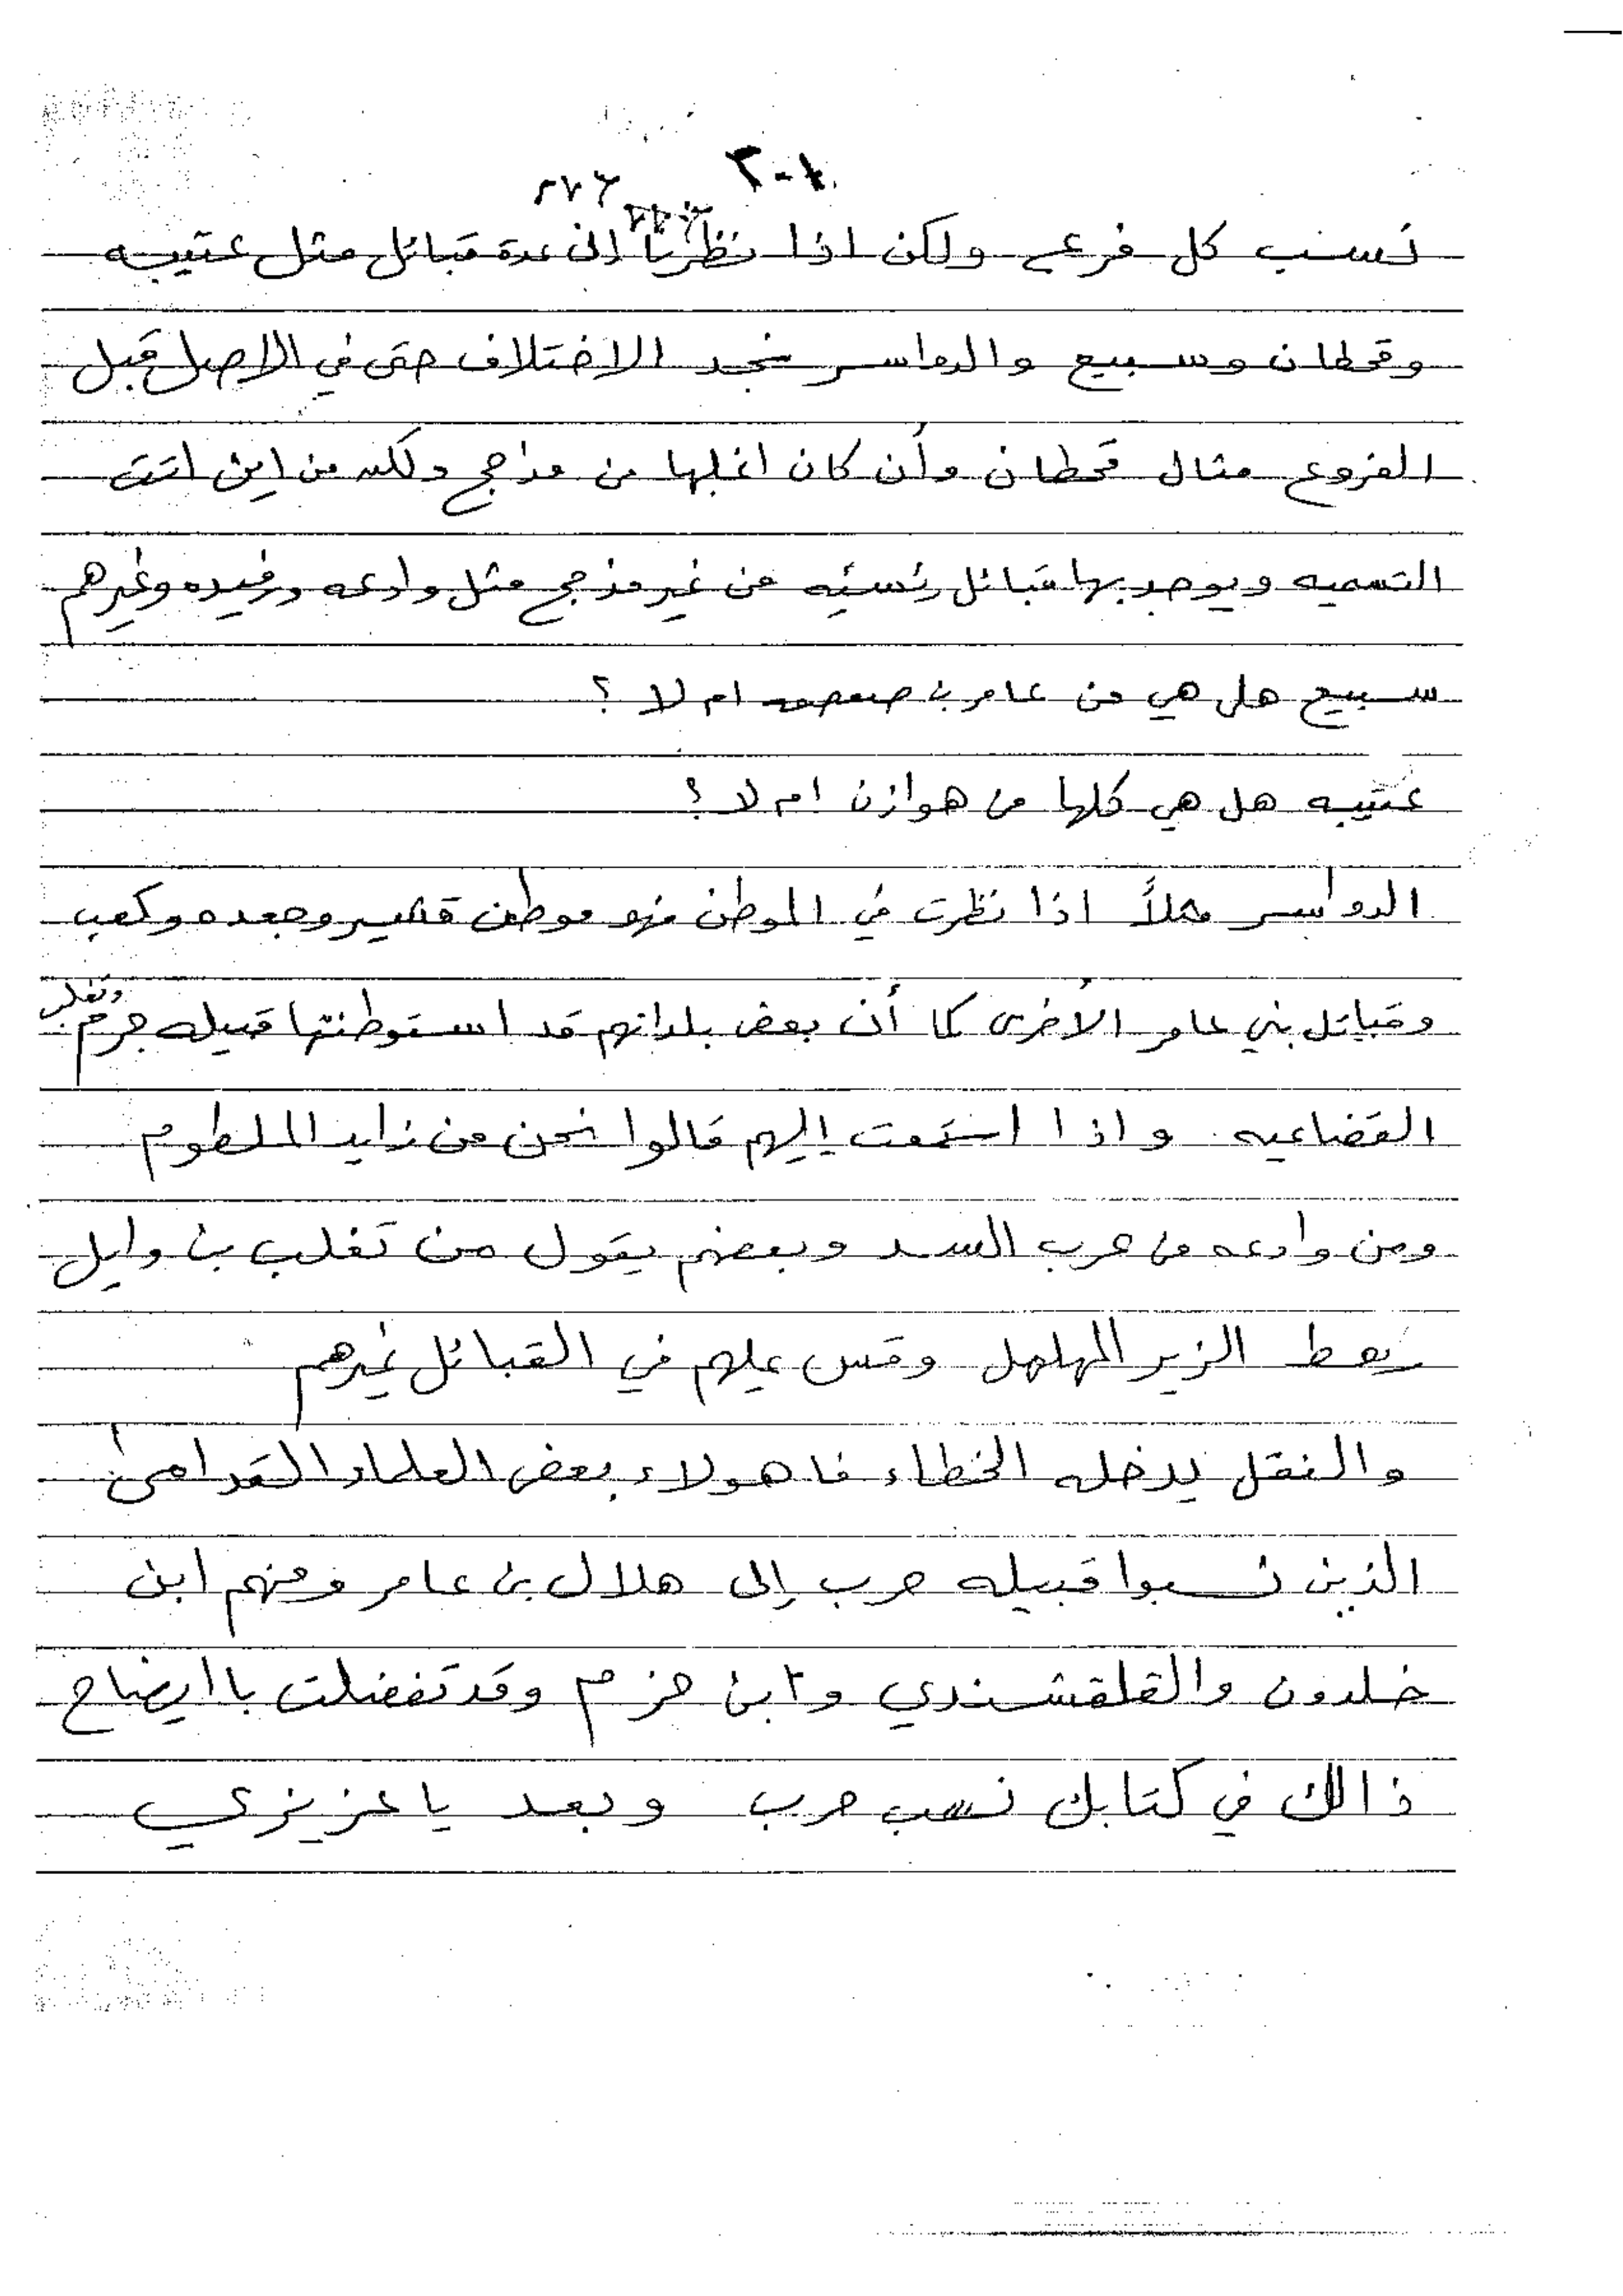 ٢٠٨
٢٧٦
نسب كل فرع ولكن اذا نظرنا الى عدة قبائل مثل عتيبه
وقحطان وسبيع والدواسر نجد الاختلاف حتى في الاصل قبل
الفروع مثال قحطان وأن كان اغلبها من مذحج ولكن من اين اتت
التسميه ويوجد بها قبائل رئسيه من غير مذحج مثل وادعه ورفيده وغيرهم
سبيع هل هي من عامر بن صعصعه ام لا ؟
عتيبه هل هي كلها من هوازن ام لا ؟
الدواسر مثلاً اذا نظرت في الموطن فهو موطن قشير وجعده وكعب
وقبائل بني عامر الأخرى كما أن بعض بلدانهم قد استوطنتها قبيله جرم
القضاعيه . واذا استمعت إليهم قالوا نحن من زايد الملطوم
ومن وادعه من عرب السد وبعضهم يقول من تغلب بن وايل
رهط الزير المهلهل وقس عليهم في القبائل غيرهم
والنقل يدخله الخطاء فاهولاء بعض العلماء القدامى
الذين نسبوا قبيله حرب إلى هلال بن عامر ومنهم ابن
خلدون والقلقشندي وابن حزم وقد تفضلت باايضاح
ذالك في كتابك نسب حرب وبعد ياعزيزي